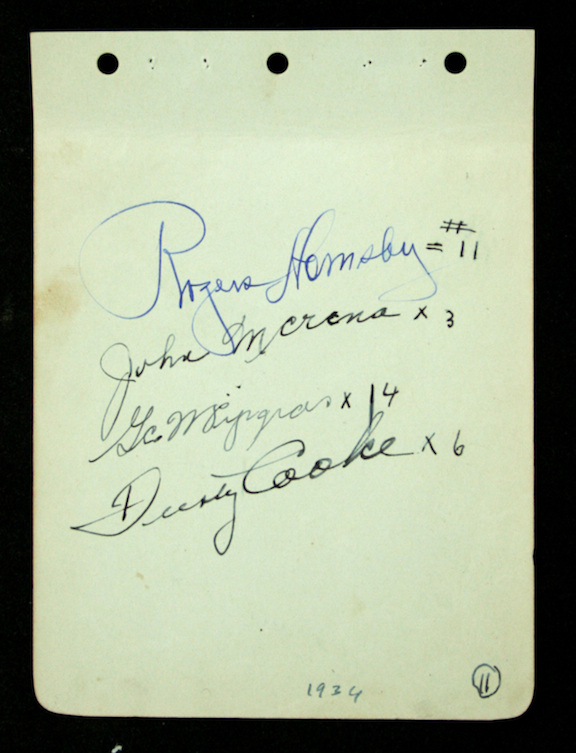 Rogers Hornsby = #11
John Merena x 3
Geo W Pipgras x 14
Dusty Cooke x 6
1934
11